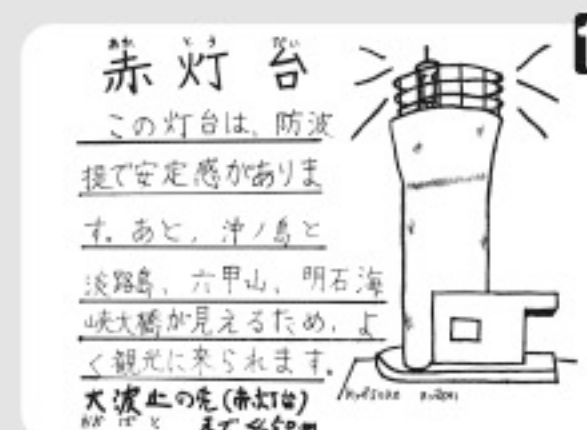 赤灯台
この灯台は、防波
堤で安定感がありま
す。あと、沖ノ島と
淡路島、六甲山、明石海
峡大橋が見えるため、よ
く観光に来られます。
大波止の先(赤灯台)
まで 450m